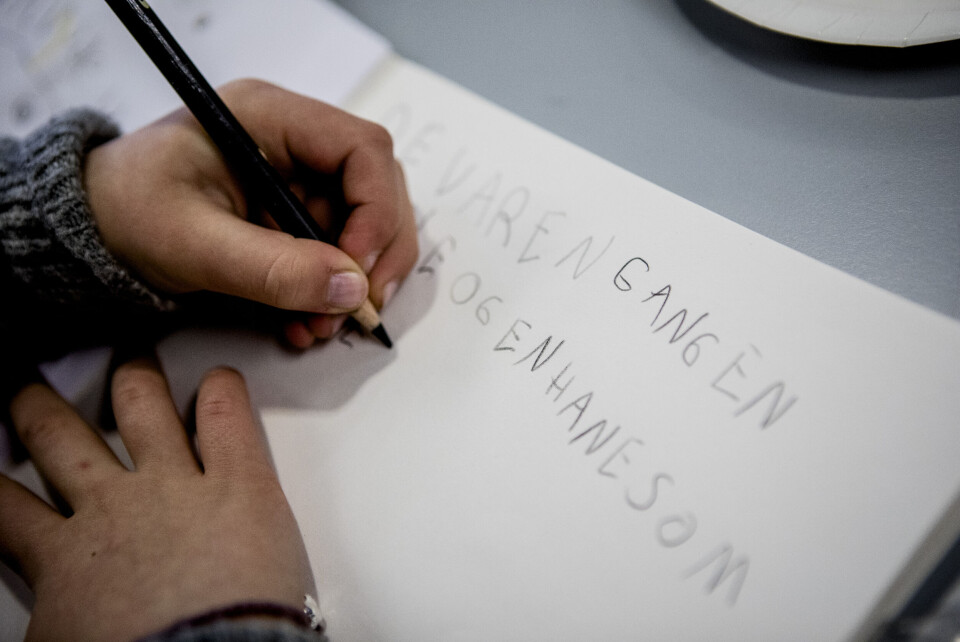 DE VAR EN GANG EN
OG EN HANE SOM